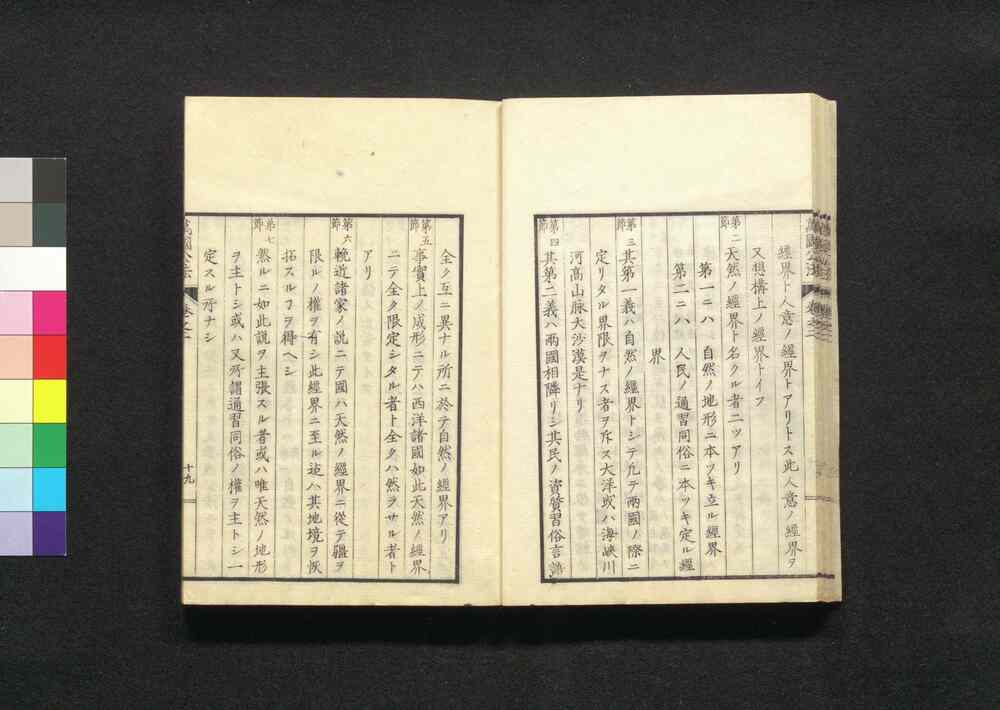 經界ト人意ノ經界トアリトス此人意ノ經界ヲ
又想構上ノ經界トイフ
第二節 天然ノ經界ト名クル者二ツアリ
第一ニハ 自然ノ地形ニ本ツキ立ル經界
第二ニハ 人民ノ通習同俗ニ本ツキ定ル經
界
第三節 其第一義ハ自然ノ經界トシテ凢テ兩國ノ際ニ
定リタル界限ヲナス者ヲ斥ス大洋或ハ海峽川
河高山脉大沙漠是ナリ
第四節 其第二義ハ兩國相隣リシ其民ノ資質習俗言語
全ク互ニ異ナル所ニ於テ自然ノ經界アリ
第五節 事實上ノ成形ニテハ西洋諸國如此天然ノ經界
ニテ全ク限定シタル者ト全クハ然ラサル者ト
アリ
第六節 輓近諸家ノ説ニテ國ハ天然ノ經界ニ從テ疆ヲ
限ルノ權ヲ有シ此經界ニ至ル迠ハ其地境ヲ恢
拓スルヿヲ得ヘシ
第七節 然ルニ如此説ヲ主張スル者或ハ唯天然ノ地形
ヲ主トシ或ハ又所謂通習同俗ノ權ヲ主トシ一
定スル所ナシ
萬國公法 卷之二
十九